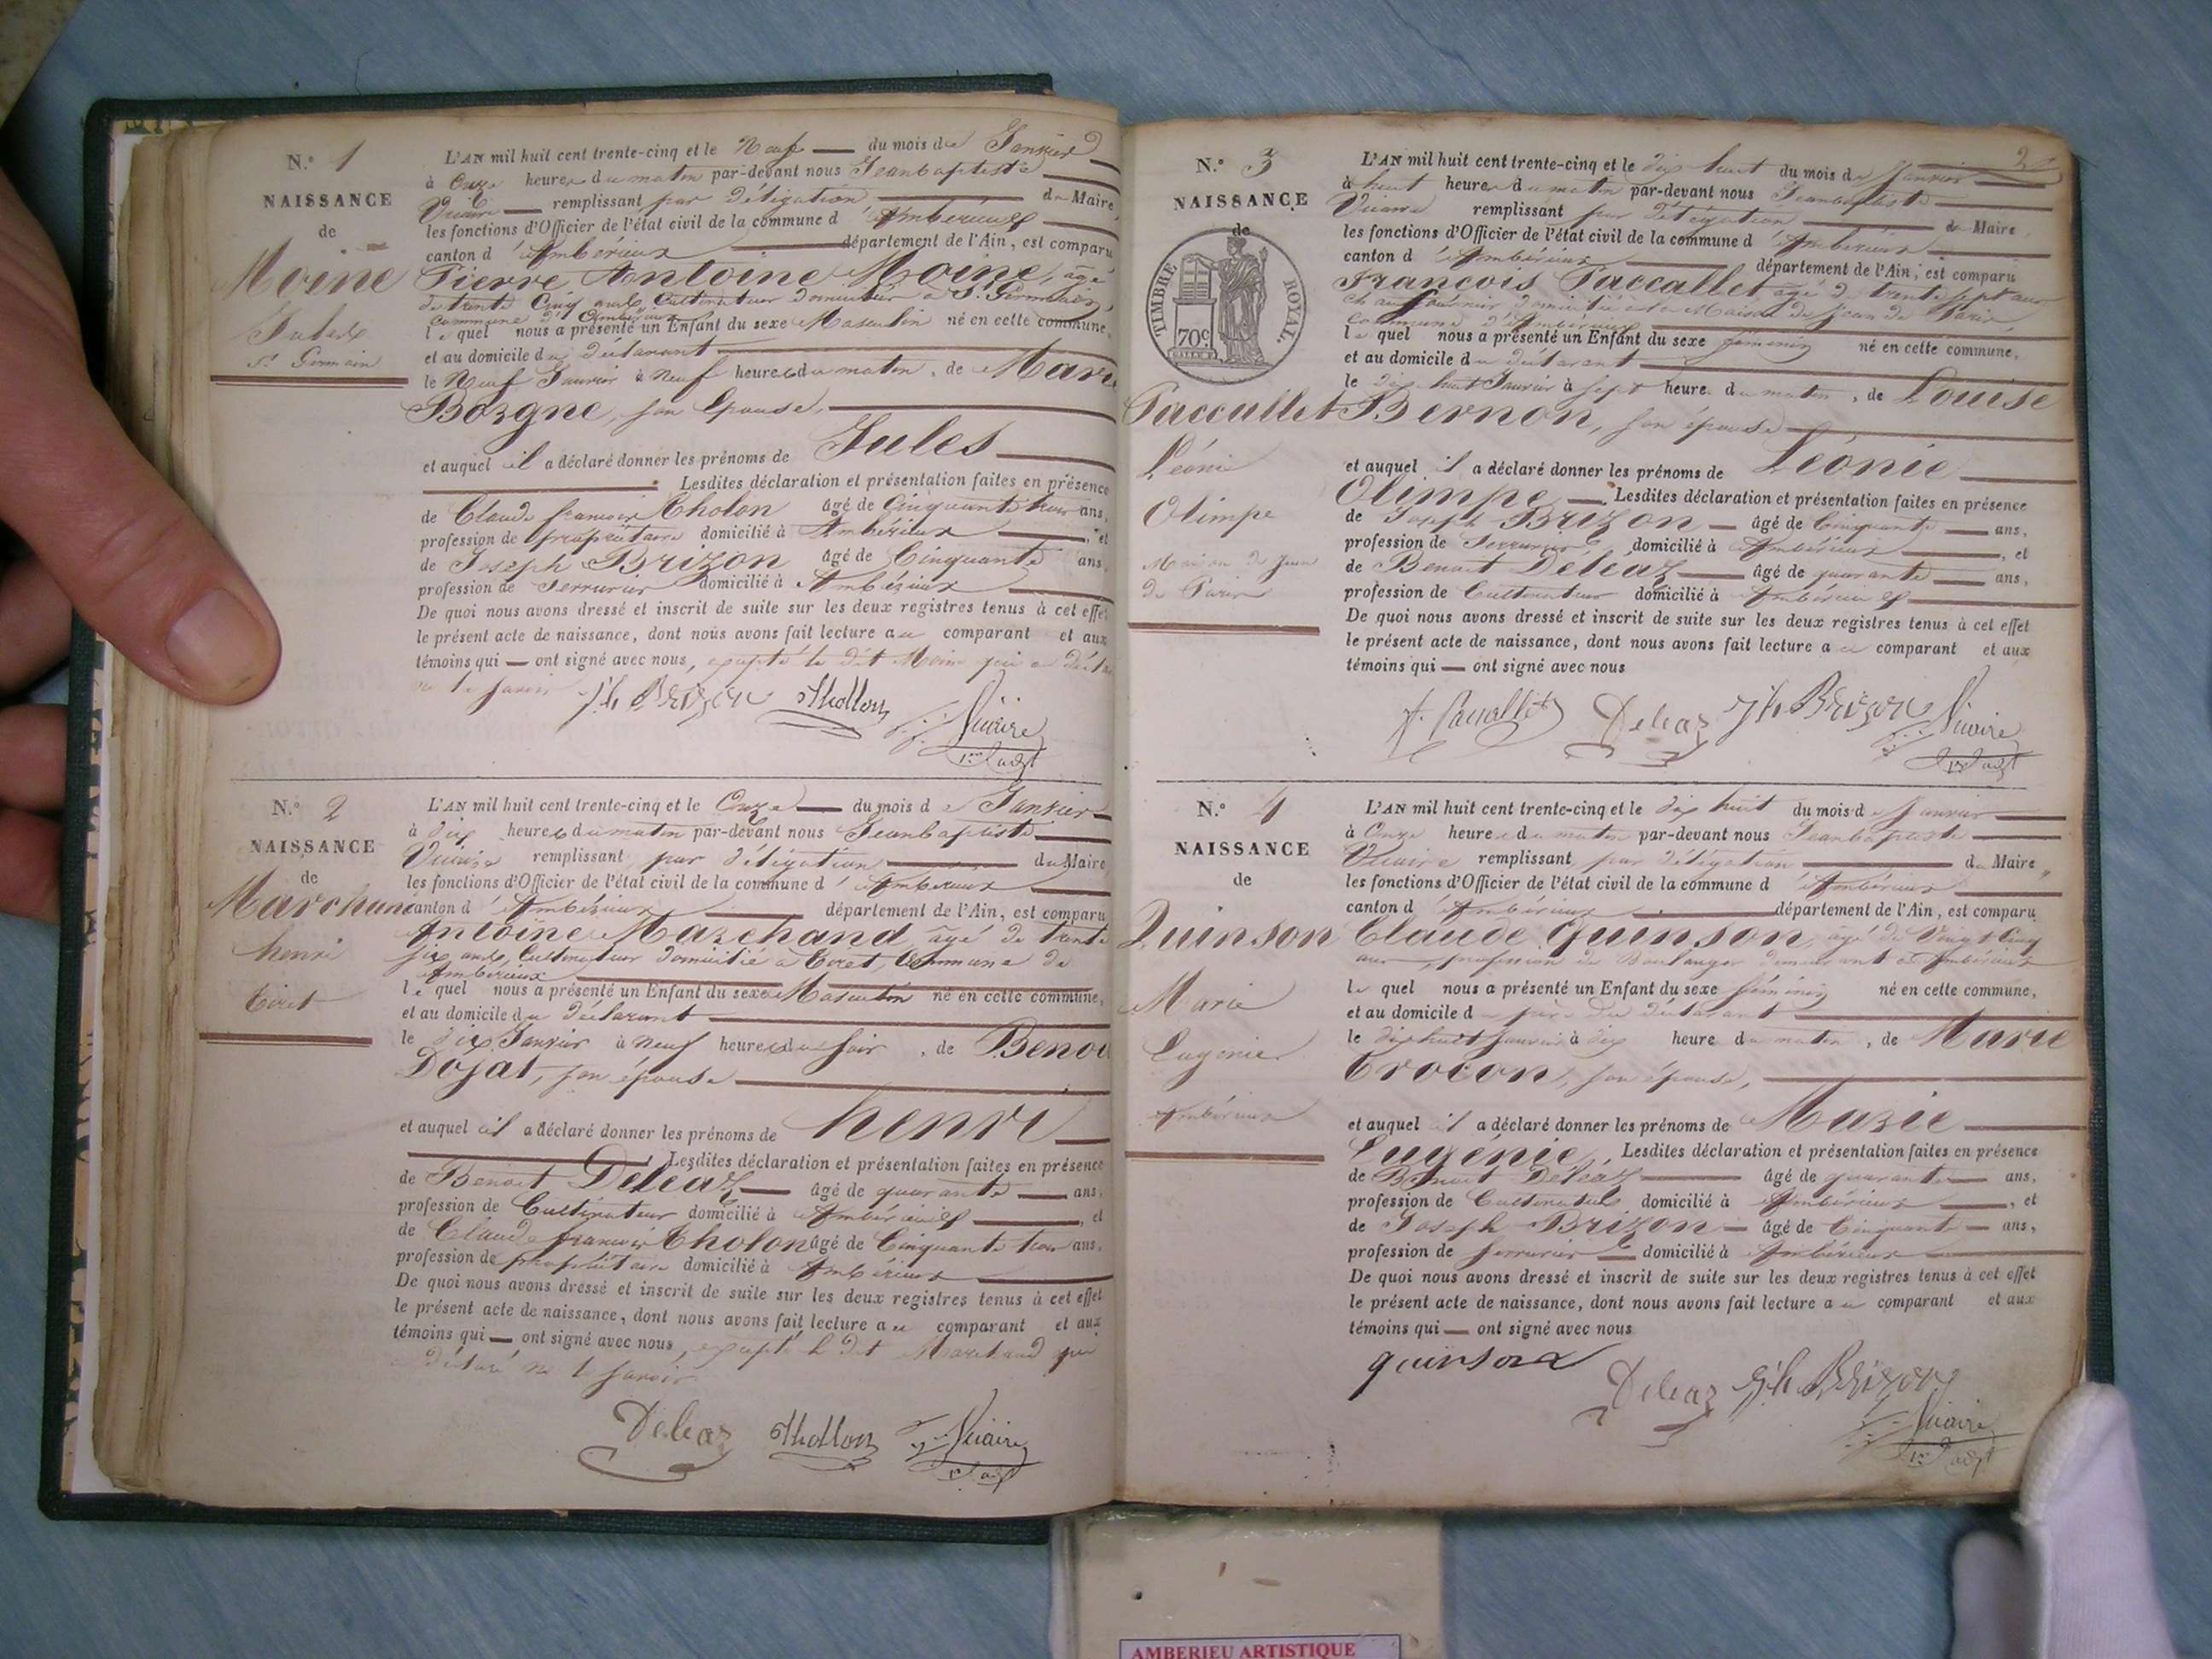 N.o 1
NAISSANCE
de
Moine
Jules
St Germain
L'AN mil huit cent trente-cinq et le Neuf du mois de Janvier
à Onze heures du matin par-devant nous Jeanbaptiste
Vicaire remplissant par délégation du Maire
les fonctions d'Officier de l'état civil de la commune d'Ambérieux
canton d'Ambérieux département de l'Ain, est comparu
Pierre Antoine Moine, âgé
de trente cinq ans, Cultivateur domicilié à St. Germain,
commune d'Ambérieux
lequel nous a présenté un Enfant du sexe Masculin né en cette commune,
et au domicile du déclarant
le Neuf Janvier à Neuf heures du matin, de Marie
Bozgne, son Epouse,
et auquel il a déclaré donner les prénoms de Jules
Lesdites déclaration et présentation faites en présence
de Claude françois Tholon âgé de Cinquante trois ans,
profession de propriétaire domicilié à Ambérieux, et
de Joseph Brizon âgé de Cinquante ans,
profession de Serrurier domicilié à Ambérieux
De quoi nous avons dressé et inscrit de suite sur les deux registres tenus à cet effet
le présent acte de naissance, dont nous avons fait lecture au comparant et aux
témoins qui ont signé avec nous, excepté le dit Moine qui a déclaré
ne le savoir
Jh Brizon Thollon Vicaire
N.o 2
NAISSANCE
de
Marchand
henri
Tiret
L'AN mil huit cent trente-cinq et le Onze du mois de Janvier
à dix heures du matin par-devant nous Jeanbaptiste
Vicaire remplissant par délégation du Maire
les fonctions d'Officier de l'état civil de la commune d'Ambérieux
canton d'Ambérieux département de l'Ain, est comparu
Antoine Marchand âgé de trente
six ans, Cultivateur domicilié à Tiret, Commune de
Ambérieux
lequel nous a présenté un Enfant du sexe Masculin né en cette commune,
et au domicile du déclarant
le dix Janvier à Neuf heures du soir, de Benoi
Dojat, son épouse
et auquel il a déclaré donner les prénoms de henri
Lesdites déclaration et présentation faites en présence
de Benoit Deleaz âgé de quarante ans,
profession de Cultivateur domicilié à Ambérieux, et
de Claude françois Tholon âgé de Cinquante trois ans,
profession de propriétaire domicilié à Ambérieux
De quoi nous avons dressé et inscrit de suite sur les deux registres tenus à cet effet
le présent acte de naissance, dont nous avons fait lecture au comparant et aux
témoins qui ont signé avec nous, excepté le dit Marchand qui
a déclaré ne le savoir
Deleaz Thollon Vicaire
2
N.o 3
NAISSANCE
de
TIMBRE ROYAL
70c
Paccallet
Léonie
Olimpe
Maison de Jean
de Paris
L'AN mil huit cent trente-cinq et le dix huit du mois de Janvier
à huit heures du matin par-devant nous Jeanbaptiste
Vicaire remplissant par délégation du Maire
les fonctions d'Officier de l'état civil de la commune d'Ambérieux
canton d'Ambérieux département de l'Ain, est comparu
François Paccallet âgé de trente sept ans
chaufournier domicilié à la Maison de Jean de Paris,
commune d'Ambérieux
lequel nous a présenté un Enfant du sexe féminin né en cette commune,
et au domicile du déclarant
le dix huit Janvier à sept heure du matin, de Louise
Bernon, son épouse
et auquel il a déclaré donner les prénoms de Léonie
Olimpe Lesdites déclaration et présentation faites en présence
de Joseph Brizon âgé de Cinquante ans,
profession de Serrurier domicilié à Ambérieux, et
de Benoit Deleaz âgé de quarante ans,
profession de Cultivateur domicilié à Ambérieux
De quoi nous avons dressé et inscrit de suite sur les deux registres tenus à cet effet
le présent acte de naissance, dont nous avons fait lecture au comparant et aux
témoins qui ont signé avec nous
f. Paccallet Deleaz Jh Brizon Vicaire
N.o 4
NAISSANCE
de
Quinson
Marie
Eugenie
Ambérieux
L'AN mil huit cent trente-cinq et le dix huit du mois de Janvier
à Onze heures du matin par-devant nous Jeanbaptiste
Vicaire remplissant par délégation du Maire
les fonctions d'Officier de l'état civil de la commune d'Ambérieux
canton d'Ambérieux département de l'Ain, est comparu
Claude Quinson, âgé de Vingt Cinq
ans, profession de Boulanger demeurant à Ambérieux
lequel nous a présenté un Enfant du sexe féminin né en cette commune,
et au domicile du père du déclarant
le dix huit Janvier à dix heure du matin, de Marie
Trocon, son épouse,
et auquel il a déclaré donner les prénoms de Marie
Eugénie, Lesdites déclaration et présentation faites en présence
de Benoit Deleaz âgé de quarante ans,
profession de Cultivateur domicilié à Ambérieux, et
de Joseph Brizon âgé de Cinquante ans,
profession de Serrurier domicilié à Ambérieux
De quoi nous avons dressé et inscrit de suite sur les deux registres tenus à cet effet
le présent acte de naissance, dont nous avons fait lecture au comparant et aux
témoins qui ont signé avec nous
quinson Deleaz Jh Brizon Vicaire
AMBERIEU ARTISTIQUE